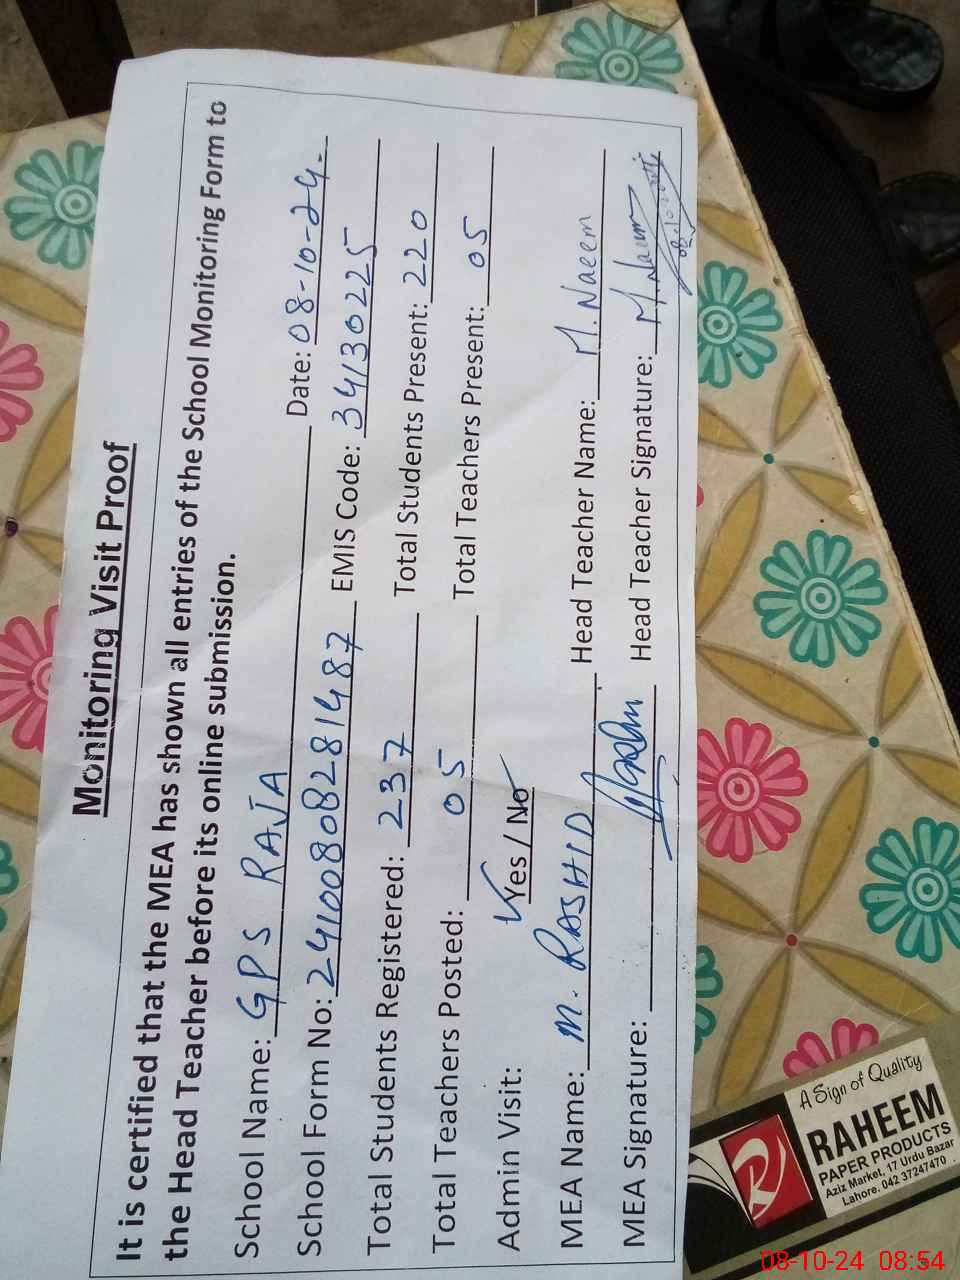 Monitoring Visit Proof
It is certified that the MEA has shown all entries of the School Monitoring Form to
the Head Teacher before its online submission.
School Name: GPS RAJA Date: 08-10-24.
School Form No: 24100808281487 EMIS Code: 34130225
Total Students Registered: 237 Total Students Present: 220
Total Teachers Posted: 05 Total Teachers Present: 05
Admin Visit: Yes / No
MEA Name: M. RASHID Head Teacher Name: M. Naeem
MEA Signature: Head Teacher Signature: M. Naeem
A Sign of Quality
RAHEEM
PAPER PRODUCTS
Aziz Market, 17 Urdu Bazar
Lahore. 042 37247470
08-10-24 08:54